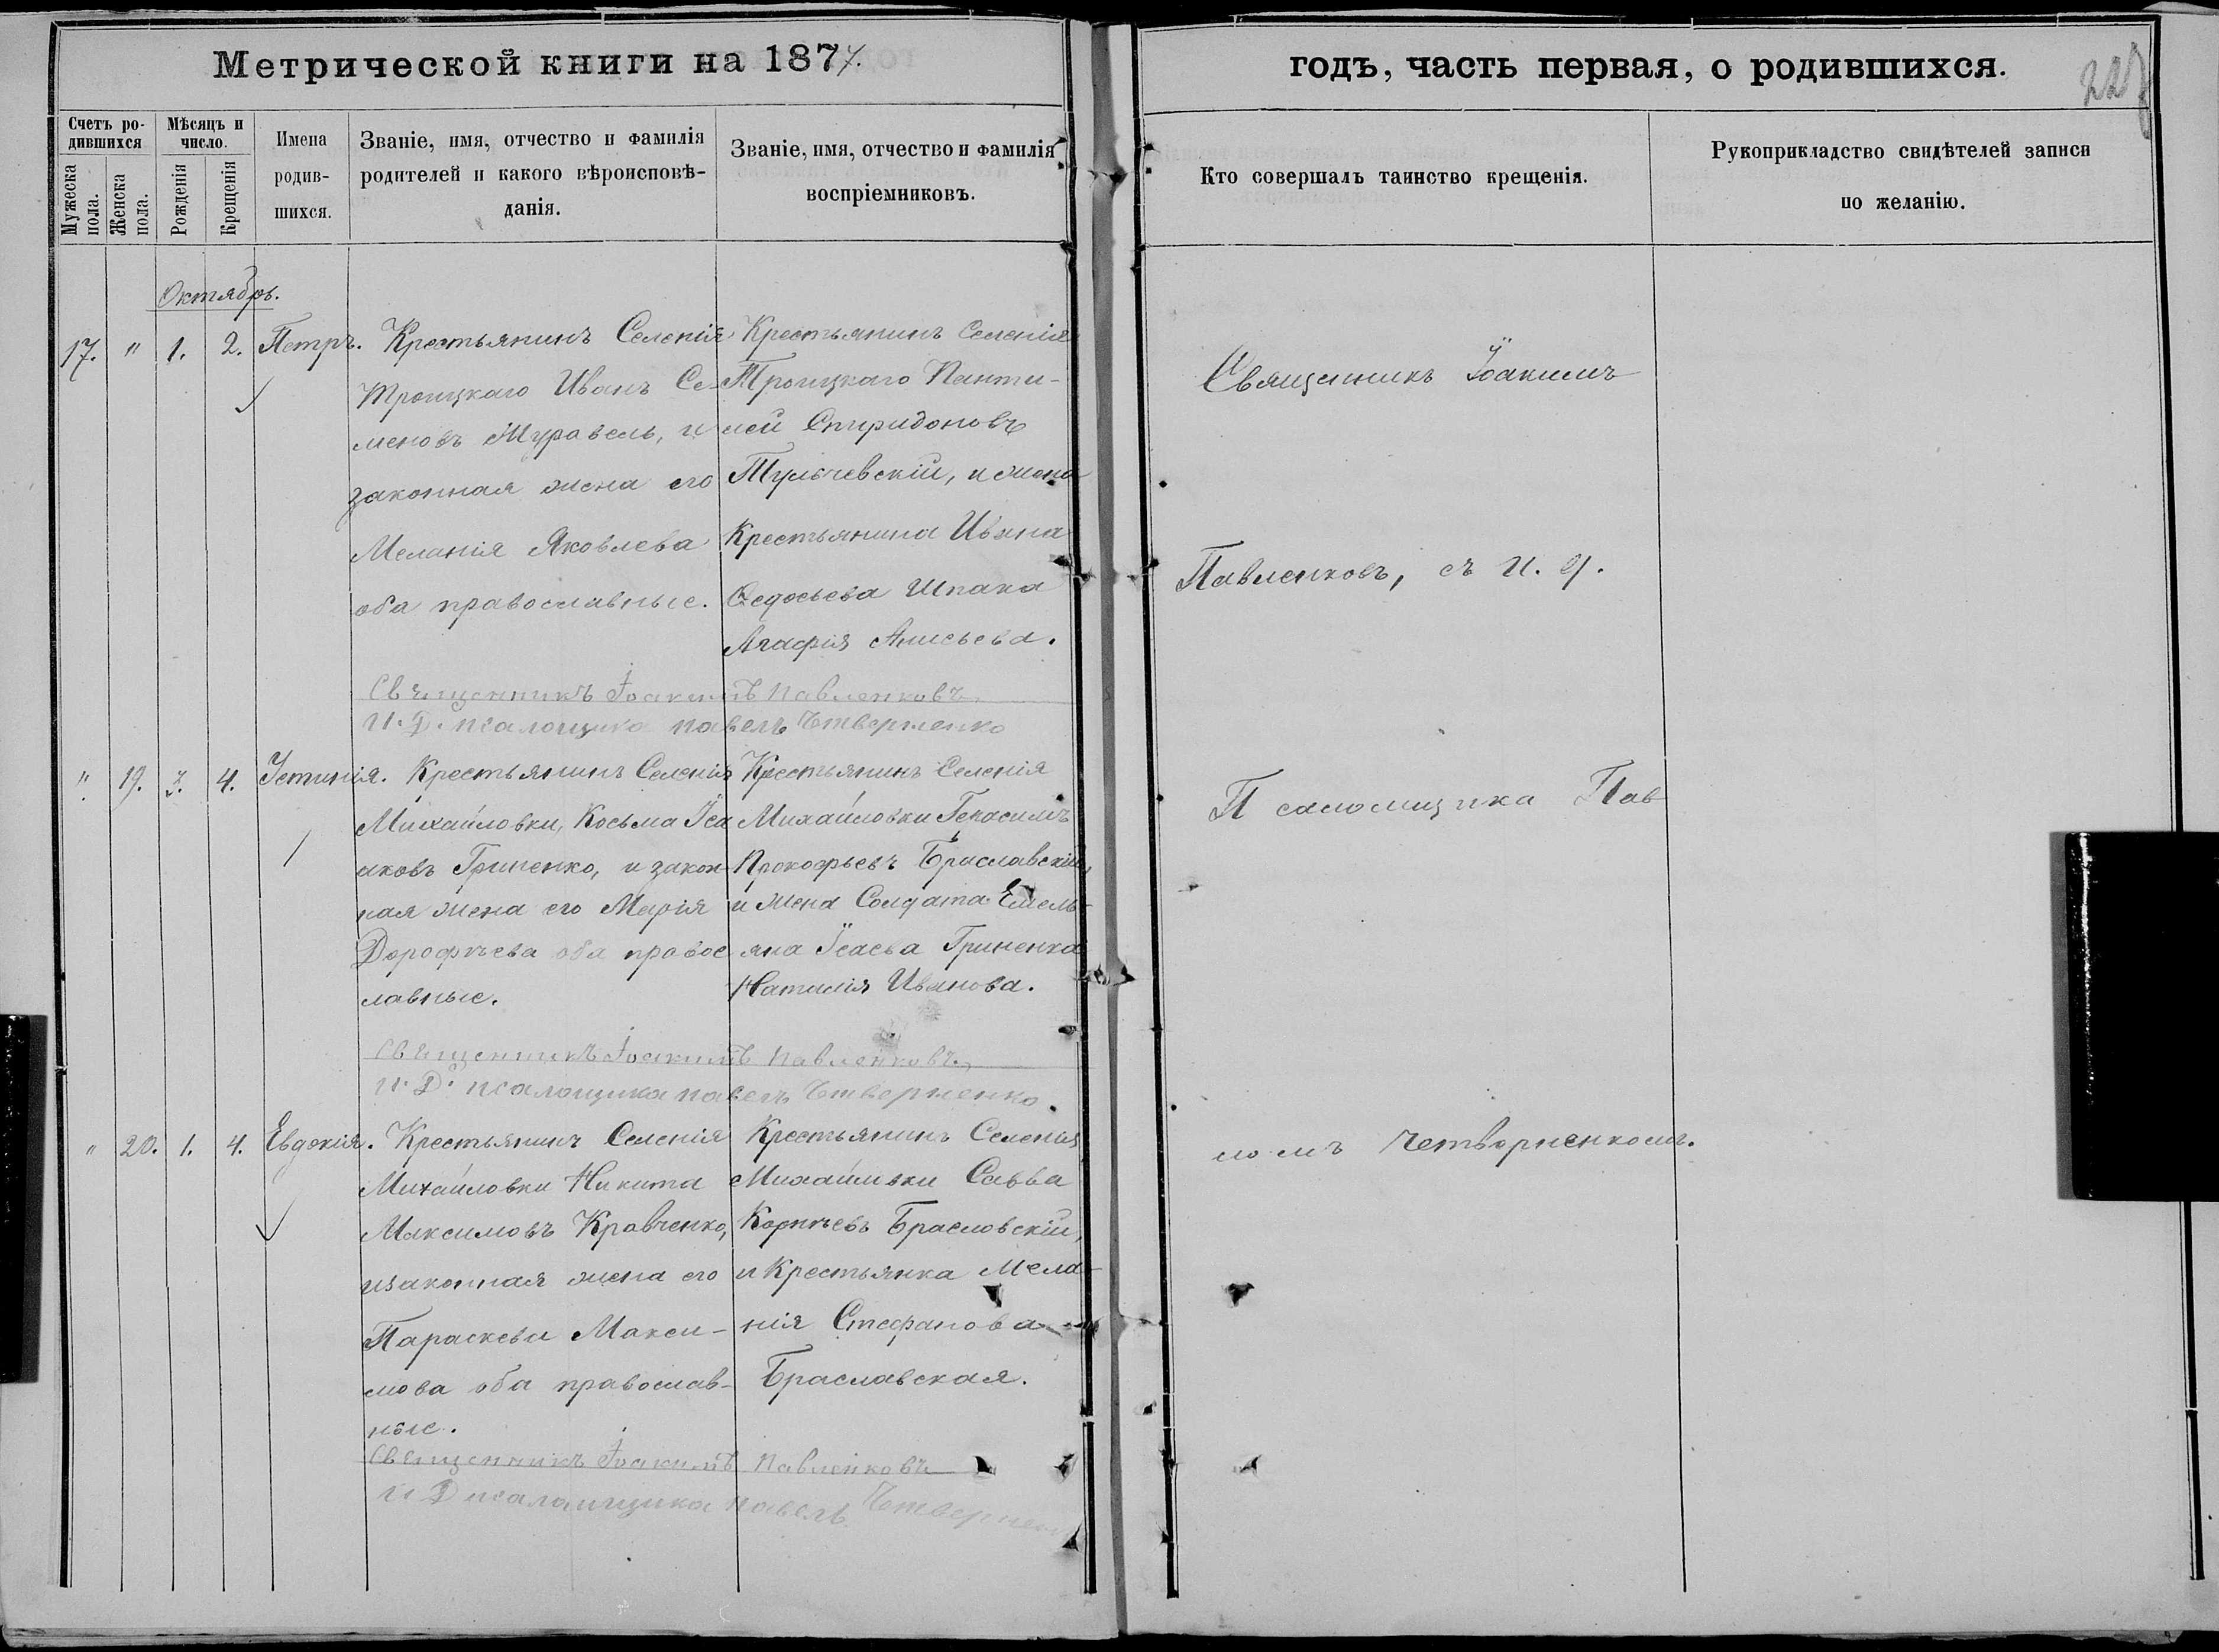 Метрической книги на 1877.
годъ, часть первая, о родившихся.
Счетъ ро-
дившихся
Мужеска пола.
Женска пола.
Мѣсяцъ и
число.
Рожденія
Крещенія
Имена
родив-
шихся.
Званіе, имя, отчество и фамилія
родителей и какого вѣроисповѣ-
данія.
Званіе, имя, отчество и фамилія
воспріемниковъ.
Кто совершалъ таинство крещенія.
Рукоприкладство свидѣтелей записи
по желанію.
Октябрь.
17. " 1. 2. Петръ.
Крестьянинъ Селенія
Троицкаго Иванъ Се-
меновъ Журавель, и
законная жена его
Меланія Яковлева
оба православные.
Крестьянинъ Селенія
Троицкаго Панти-
лей Спиридоновъ
Тульчевскій, и жена
Крестьянина Ивана
Федосьева Шпака
Агафія Анисьева.
Священникъ Іоакимъ Павленковъ
И. Д. псаломщика Павелъ Четверненко
" 19. 3. 4. Устинія.
Крестьянинъ Селенія
Михайловки, Косьма Iса
аковъ Гриненко, и закон
ная жена его Марія
Дорофѣева оба правос
лавные.
Крестьянинъ Селенія
Михайловки Герасимъ
Прокофьевъ Браславскій,
и жена Солдата Емель-
яна Iсаева Гриненка
Наталія Иванова.
Священникъ Іоакимъ Павленковъ
И. Д. псаломщика Павелъ Четверненко.
" 20. 1. 4. Евдокія.
Крестьянинъ Селенія
Михайловки Никита
Максимовъ Кравченко,
изаконная жена его
Параскева Макси-
мова оба православ-
ные.
Крестьянинъ Селенія
Михайловки Савва
Корнѣевъ Брасловскій,
и Крестьянка Мела-
нія Стефанова
Браславская.
Священникъ Іоакимъ Павленковъ
И Д псаломщика Павелъ
Священникъ Іоакимъ
Павленковъ, съ И. д.
Псаломщика Пав
ломъ Четверненкомъ.